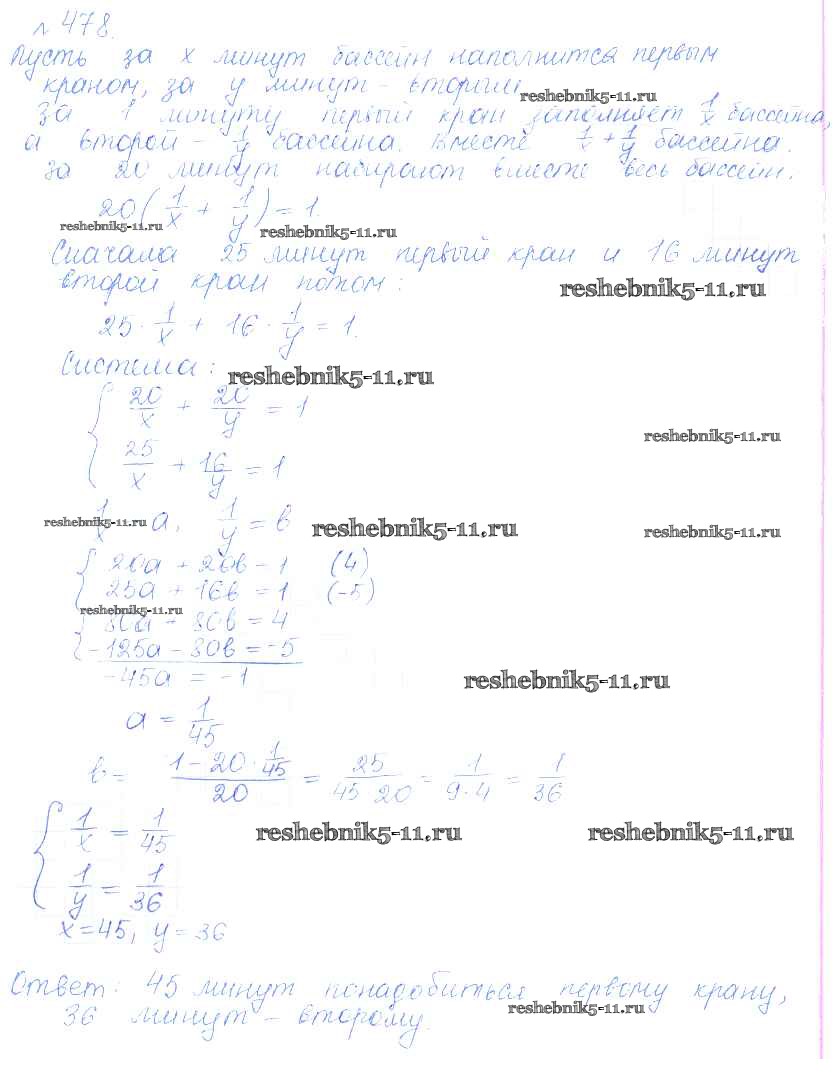 № 478.
Пусть за x минут бассейн наполнится первым
краном, за y минут - вторым
reshebnik5-11.ru
за 1 минуту первый кран заполняет 1/x бассейна,
а второй - 1/y бассейна. Вместе 1/x + 1/y бассейна.
За 20 минут набирают вместе весь бассейн.
20(1/x + 1/y) = 1.
reshebnik5-11.ru reshebnik5-11.ru
Сначала 25 минут первый кран и 16 минут
второй кран потом:
reshebnik5-11.ru
25 · 1/x + 16 · 1/y = 1.
Система:
reshebnik5-11.ru
{ 20/x + 20/y = 1
reshebnik5-11.ru
25/x + 16/y = 1
1/x a, 1/y = b
reshebnik5-11.ru reshebnik5-11.ru reshebnik5-11.ru
{ 20a + 20b = 1 (4)
25a + 16b = 1 (-5)
reshebnik5-11.ru
{ 80a + 80b = 4
-125a - 80b = -5
-45a = -1
reshebnik5-11.ru
a = 1/45
b = (1 - 20 · 1/45)/20 = 25/(45 20) = 1/(9·4) = 1/36
{ 1/x = 1/45
reshebnik5-11.ru reshebnik5-11.ru
1/y = 1/36
x = 45, y = 36
Ответ: 45 минут понадобиться первому крану,
36 минут - второму.
reshebnik5-11.ru